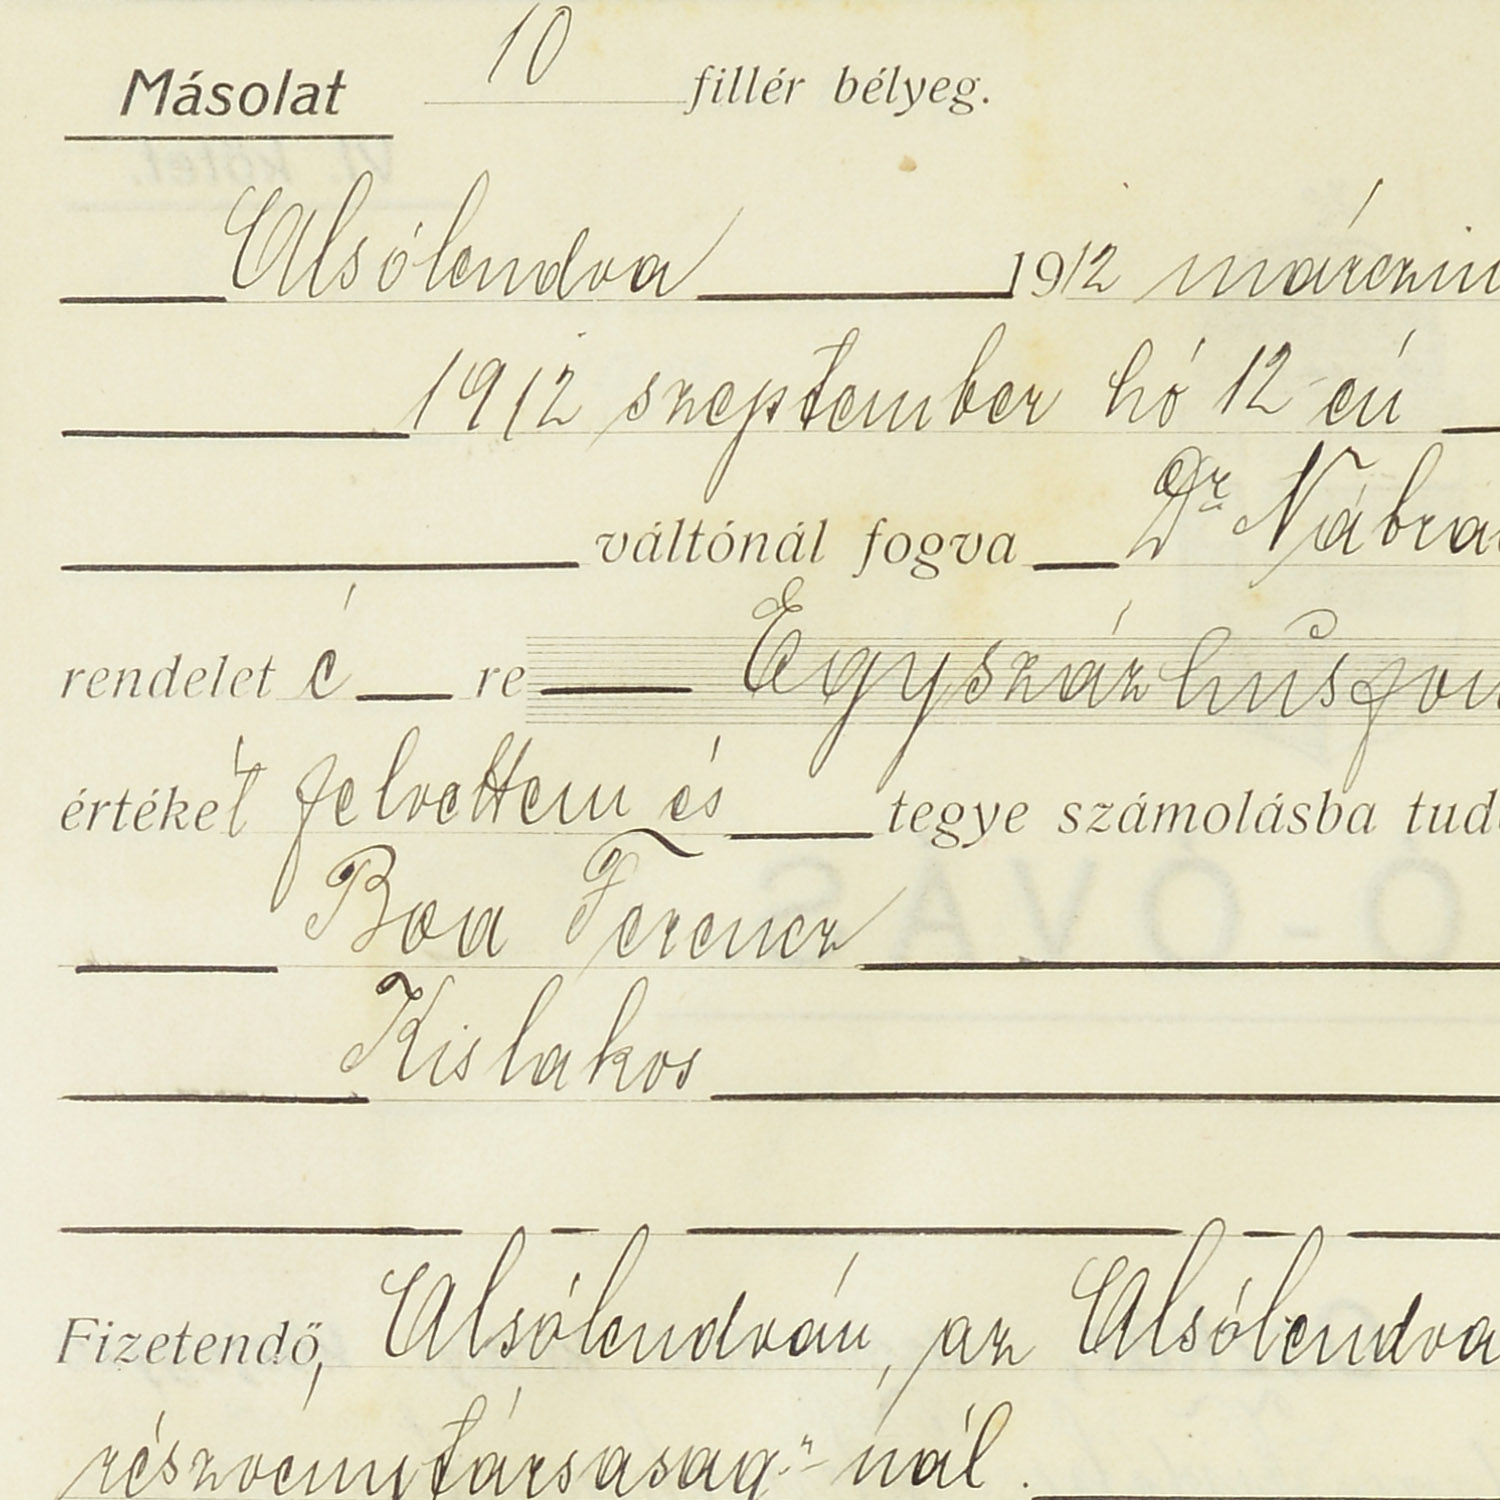 Másolat 10 fillér bélyeg.
Alsólendva 1912 márczius
1912 szeptember hó 12-én
váltónál fogva Dr Nábra
rendelet é re Egyszázhúszon
értéket felvettem és tegye számolásba tud
Boa Ferencz
Kislakos
Fizetendő, Alsólendván, az Alsólendva
részvénytársaság"-nál.